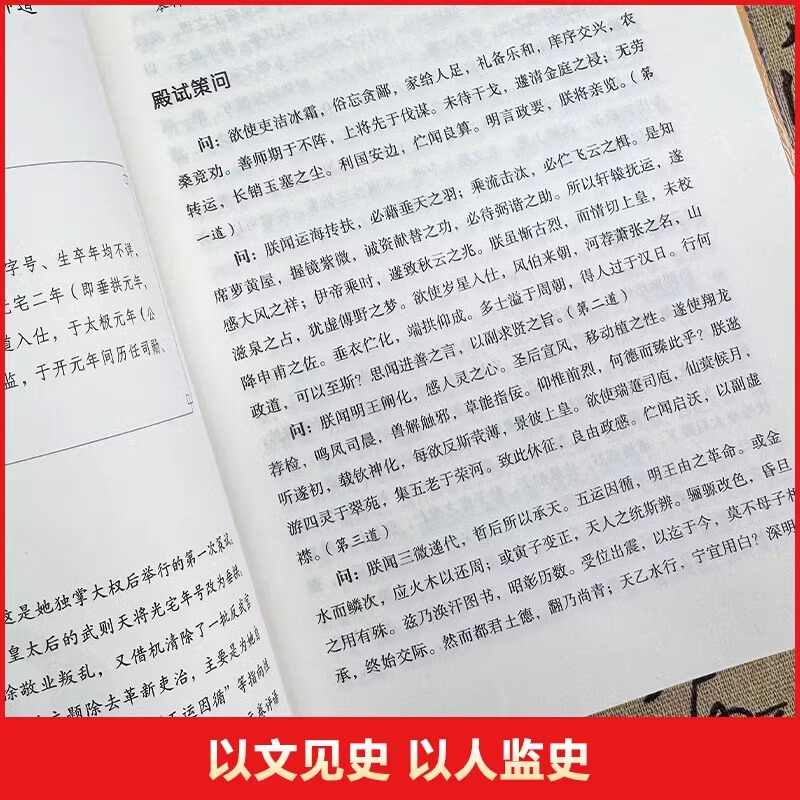 殿试策问
问：欲使吏洁冰霜，俗忘贪鄙，家给人足，礼备乐和，庠序交兴，农
桑竞劝。善师期于不阵，上将先于伐谋。未待干戈，遽清金庭之祲；无劳
转运，长销玉塞之尘。利国安边，伫闻良算。明言政要，朕将亲览。（第
一道）
问：朕闻运海抟扶，必藉垂天之羽；乘流击汰，必伫飞云之楫。是知
席萝黄屋，握镜紫微，诚资献替之功，必待弼谐之助。所以轩辕抚运，遂
感大风之祥；伊帝乘时，遽致秋云之兆。朕虽惭古烈，而情切上皇，未校
滋泉之占，犹虚傅野之梦。欲使岁星入仕，风伯来朝，河荐萧张之名，山
降申甫之佐。垂衣仁化，端拱仰成。多士溢于周朝，得人过于汉日。行何
政道，可以至斯？思闻进善之言，以副求贤之旨。（第二道）
问：朕闻明王阐化，感人灵之心。圣后宣风，移动植之性。遂使翔龙
荐检，鸣凤司晨，兽解触邪，草能指佞。仰惟前烈，何德而臻此乎？朕逖
听遂初，载钦神化，每欲反斯莪薄，景彼上皇。欲使瑞遝司庖，仙蓂候月，
游四灵于翠苑，集五老于荣河。致此休征，良由政感。伫闻启沃，以副虚
襟。（第三道）
问：朕闻三微递代，哲后所以承天。五运因循，明王由之革命。或金
水而鳞次，应火木以还周；或寅子变正，天人之统斯辨。骊騵改色，昏旦
之用有殊。兹乃涣汗图书，昭彰历数。受位出震，以迄于今，莫不母子相
承，终始交际。然而都君土德，翻乃尚青；天乙水行，宁宜用白？深明
字号、生卒年均不详，
光宅二年（即垂拱元年，
道入仕，于太极元年（公
监，于开元年间历任司勋、
这是她独掌大权后举行的第一次策试，
皇太后的武则天将光宅年号改为垂拱，
徐敬业叛乱，又借机清除了一批反武官
主题除去革新吏治，主要是为她自
五运因循”等指向
以文见史 以人监史